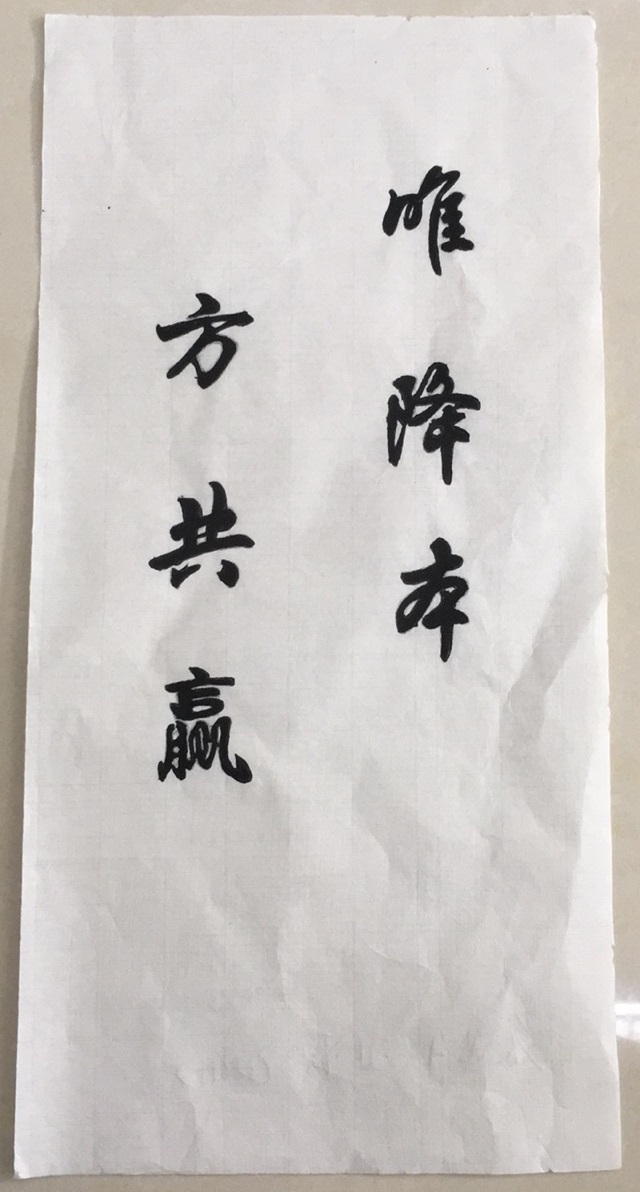 唯降本
方共赢